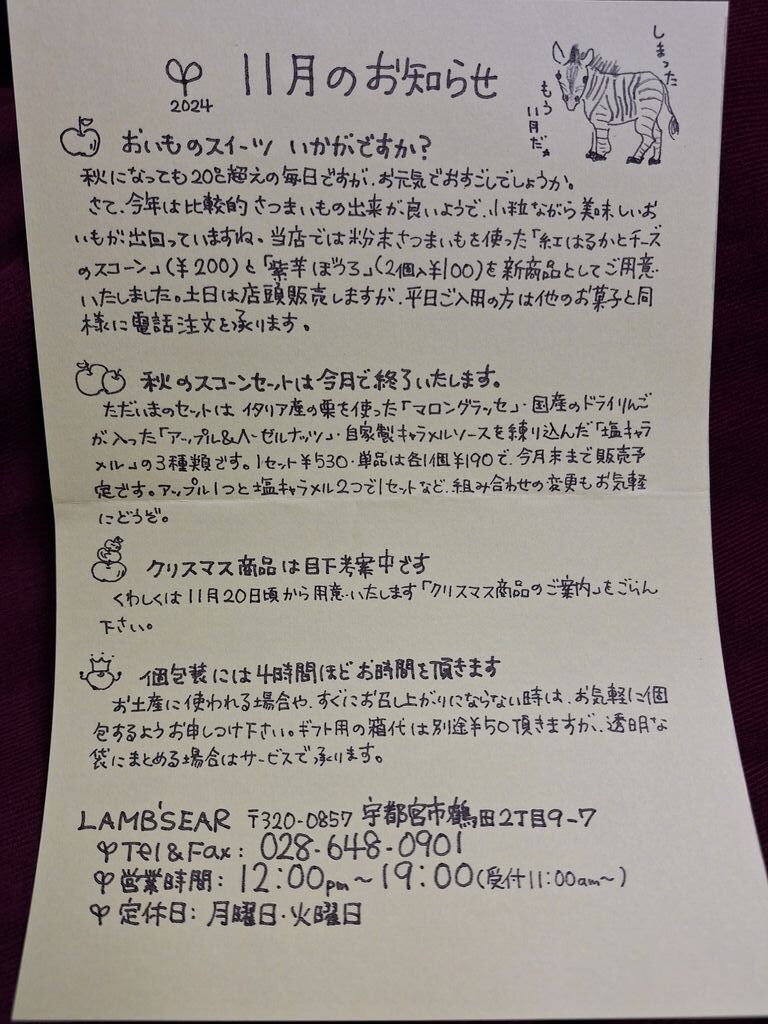 2024
11月のお知らせ
しまった
もう
11月だ
おいものスイーツ いかがですか?
秋になっても20℃超えの毎日ですが、お元気でおすごしでしょうか。
さて、今年は比較的さつまいもの出来が良いようで、小粒ながら美味しいお
いもが出回っていますね。当店では粉末さつまいもを使った「紅はるかとチーズ
のスコーン」(¥200)と「紫芋ぼうろ」(2個入¥100)を新商品としてご用意
いたしました。土日は店頭販売しますが、平日ご入用の方は他のお菓子と同
様に電話注文を承ります。
秋のスコーンセットは今月で終了いたします。
ただいまのセットは イタリア産の栗を使った「マロングラッセ」・国産のドライりんご
が入った「アップル&ヘーゼルナッツ」・自家製キャラメルソースを練り込んだ「塩キャラ
メル」の3種類です。1セット¥530・単品は各1個¥190で、今月末まで販売予
定です。アップル1つと塩キャラメル2つで1セットなど、組み合わせの変更もお気軽
にどうぞ。
クリスマス商品は目下考案中です
くわしくは11月20日頃から用意いたします「クリスマス商品のご案内」をごらん
下さい。
個包装には4時間ほどお時間を頂きます
お土産に使われる場合や、すぐにお召し上がりにならない時は、お気軽に個
包するようお申しつけ下さい。ギフト用の箱代は別途¥50頂きますが、透明な
袋にまとめる場合はサービスで承ります。
LAMB'SEAR 〒320-0857 宇都宮市鶴田2丁目9-7
Tel&Fax: 028-648-0901
営業時間: 12:00pm~19:00(受付11:00am~)
定休日: 月曜日・火曜日